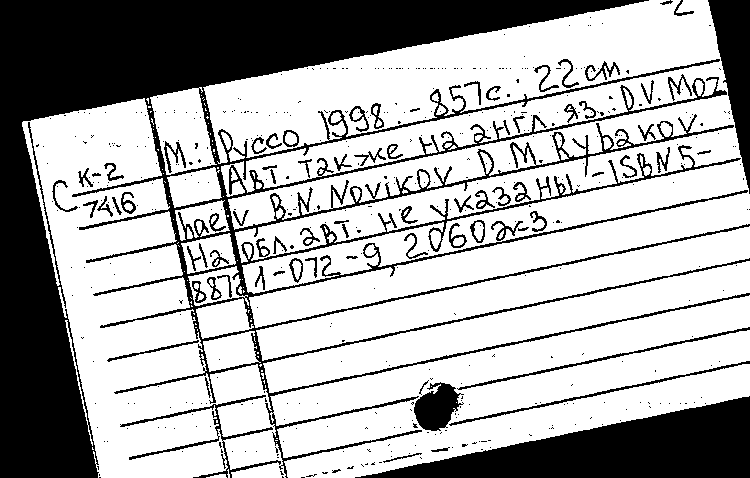 -2
М.: Руссо, 1998. - 857с.; 22 см.
Авт. также на англ. яз.: D.V. Moz-
haev, B.N. Novikov, D.M. Rybakov.
На обл. авт. не указаны. - ISBN 5-
88721-072-9, 2060экз.
С К-2
7416